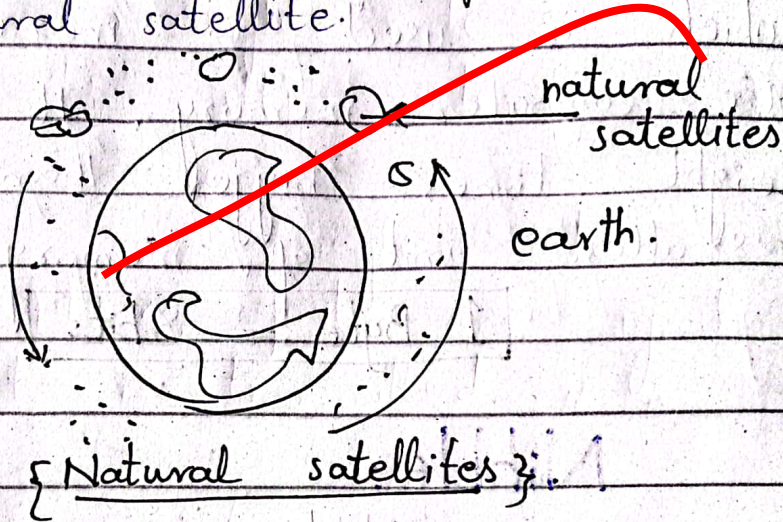 satellite.
natural
satellites
earth.
{ Natural satellites }.